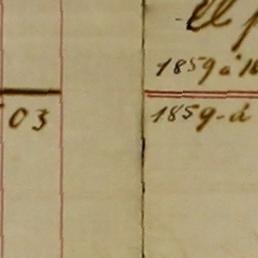 el p
1859 á 18
03
1859-á